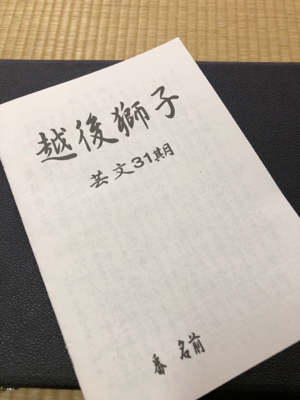 越後獅子
芸文31期
番 名前